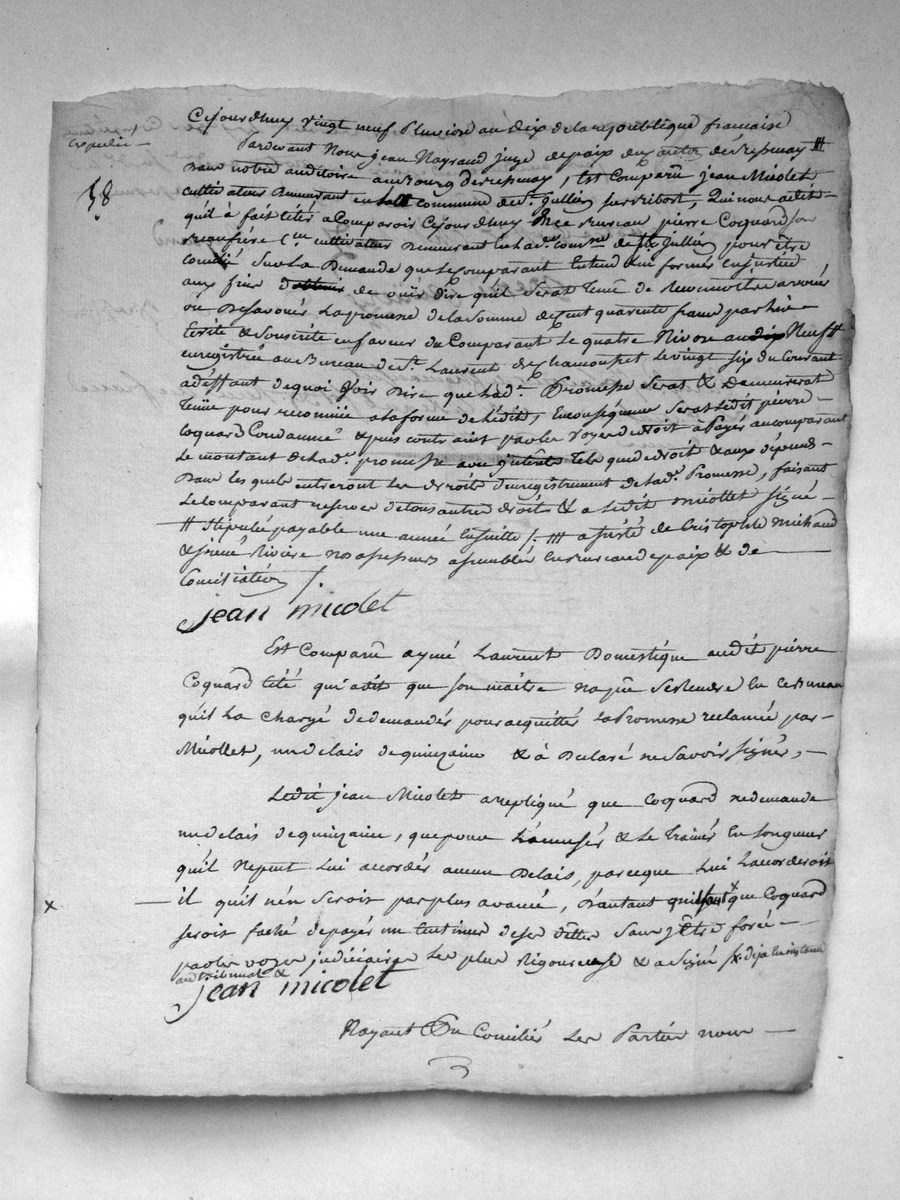 Cejourdhuy vingt neuf Pluviose an dix de la republique francaise
Expediée
Pardevant Nous jean Nayrand juge depaix du canton de Ressenay ///
58
dans notre auditoire au Bourg de ressenay, Est Comparû jean Micolet
cultivateur Demeurant en commune de St. Jullien sur ribost, Qui nous a dit
qu'il à fait Citér a Comparoir Cejourdhuy En ce Bureau pierre Coquard son
beaufrére cultivateur Demeurant en la de. Comune de St Jullien pour être
Concilié Sur La Demande que Le Comparant Entend Lui formér en justice
aux fins de ouïr dire quil Serat Tenu de Reconnoitre avouér
ou Desavouér La promesse de la Somme de Cent quarente francs par lui
Ecrite & Souscrite en faveur du Comparant Le quatre Nivose an Neuf //
enregistrée au Bureau de St. Laurent de Chamousset le vingt six du Courant
a deffaut de quoi Voir Dire que lad. Promesse Serat & Demeurerat
Tenüe pour reconnüe a la forme de Lédit, En conséquence Serat Ledit pierre
Coquard Condamné & puis contraint par les voyes de droit à Payér au comparant
Le montant de lad. promesse avec jnterêts Tels que de droit & aux dépends
Dans les quels entreront Les droits d'enregistrement de lad. Promesse, faisant
Le Comparant reserves de tous autres droits & a Ledit micollet Signé
// stipulée payable une année Ensuitte /. /// assisté de Cristophle michaud
& Rivière nos assesseurs assemblés En Bureau de paix & de
Conciliation /.
jean micolet
Est Comparû aymé Laurent Domestique audit pierre
Coquard Cité qui a dit que son maitre na pû Se Rendre En ce Bureau
qu'il La Chargé de demandér pour acquittér La Promesse reclamée par
Micollet, un delais de quinzaine & à Declaré ne Savoir Signér,
Ledit jean Micolet a repliqué que Coquard ne demande
un delais de quinzaine, que pour L'amusér & Le Trainér En Longueur
qu'il Ne peut Lui accordér aucun Delais, parceque Lui L'accorderoit
il qu'il n'en Seroit pas plus avancé, D'autant que x que Coquard
x
seroit faché de payér un Centime de ses dettes Sans y Être forcé
par les voyes judiciaires Les plus Rigoureuses & a Signé /x. deja
au tribunal &
jean micolet
Nayant Pû Conciliér Les Parties nous